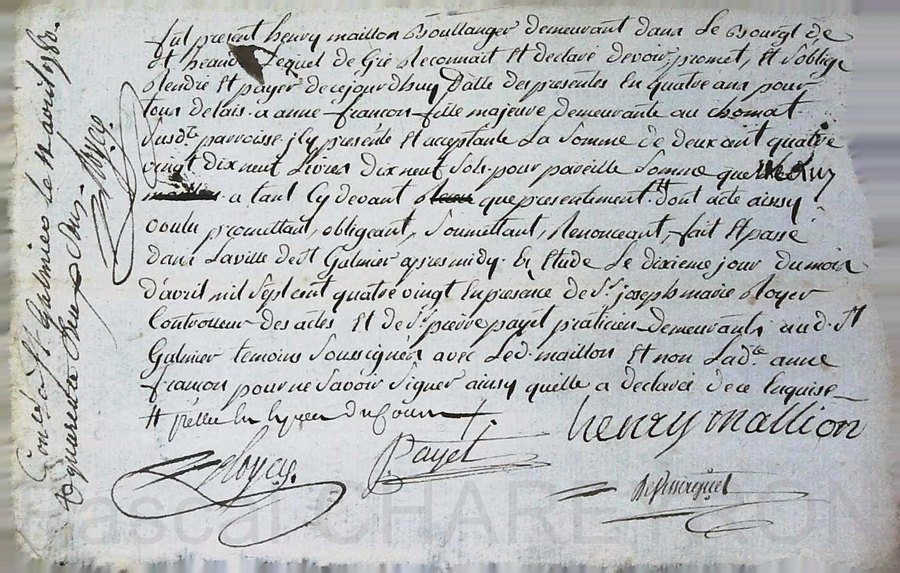 fut present henry maillon Boullanger demeurant dans Le Bourgt de
Lequel de Gré Reconnait Et declaré devoir, promet, Et s'oblige
Rendre Et payer de cejourdhuy Datte des presentes En quatre ans pour
tous delais a anne francon fille majeure demeurante au chomat
Susdte parroisse, icy presente Et acceptante La Somme de deux cent quatre
vingt dix neuf Livres dix neuf Sols pour pareille Somme quelle Luy
a tant Cy devant que presentement Dont acte ainsy
voulu promettant, obligeant, Soumettant, Renonceant, fait Et passé
dans Laville de St Galmier apres midy En Etude Le dixieme jour Du mois
D'avril mil Sept cent quatre vingt En presance de Sr joseph marie Royer
Controlleur des actes Et de Sr pierre payet praticien demeurants aud. St
Galmier temoins Soussignés avec Led. maillon Et non Lade anne
francon pour ne Savoir Signer ainsy quelle a declaré de ce Enquise
henry mallion
Royer
Payet
Controllé a St Galmier le avril 1780.
Royer
Pascal CHARETTON